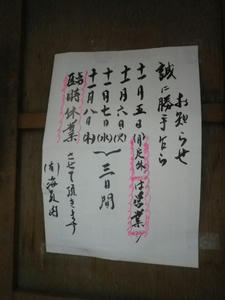 お知らせ
誠に勝手ながら
十一月五日(月)は営業
十一月六日(火)
十一月七日(水)
十一月八日(木)
三日間
臨時休業
させて頂きます
(有)